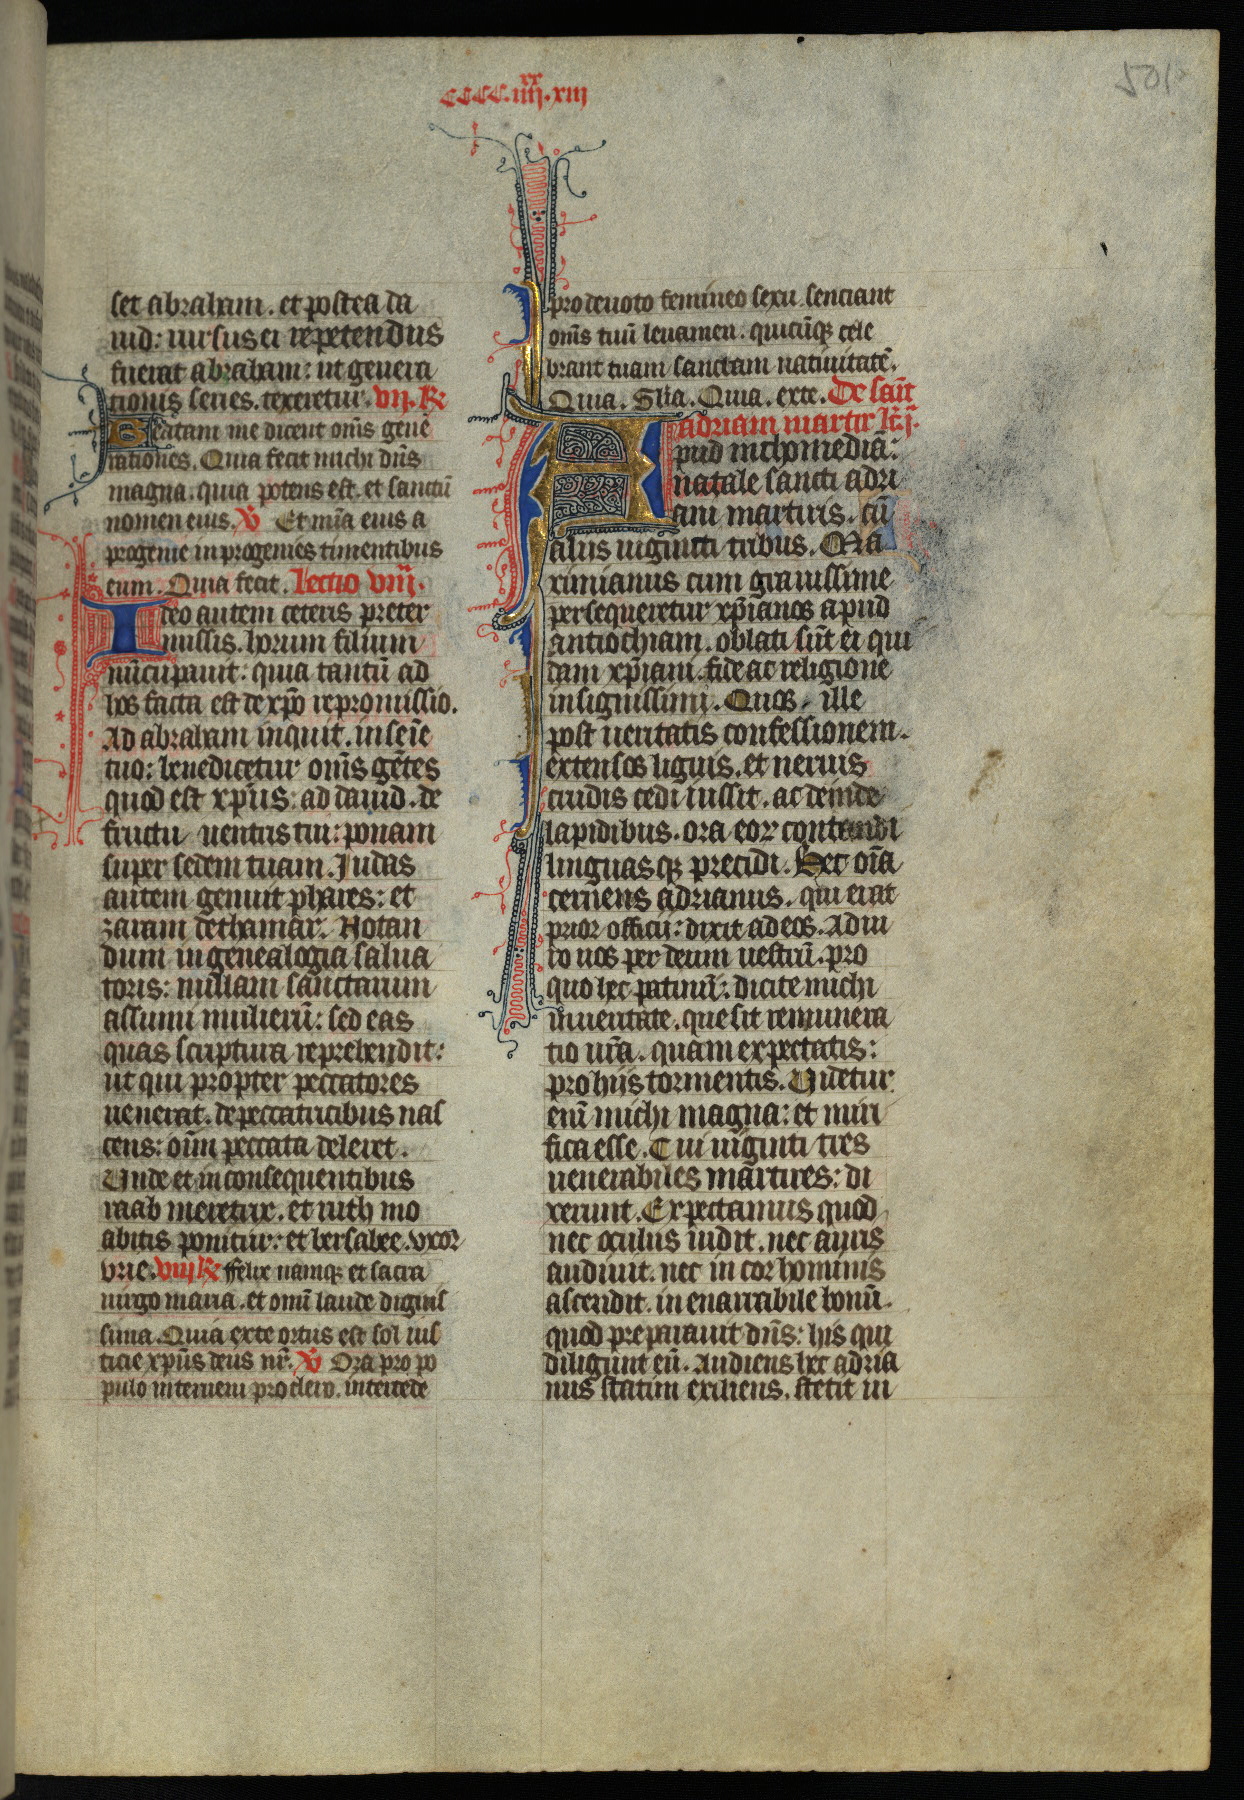 CCCC.iiij.xx.xiij
501
set abraham. et postea da
uid: rursus ei repetendus
fuerat abraham: ut genera
tionis series. texeretur. vij. R
Beatam me dicent oms̄ genē
rationes. Quia fecit michi dn̄s
magna. quia potens est. et sanctū
nomen eius. V Et mīa eius a
progenie in progenies timentibus
eum. Quia fecit. Lectio viij.
Ideo autem ceteris preter
missis. horum filium
nūcupauit: quia tantū ad
hos facta est de xp̄o repromissio.
Ad abraham inquit. in seīe
tuo: benedicetur om̄s gētes
quod est xp̄us: ad dauid. de
fructu uentris tui: ponam
super sedem tuam. Judas
autem genuit phares: et
zaram de thamar. Notan
dum in genealogia salua
toris: nullam sanctarum
assumi mulierū: sed eas
quas scriptura reprehendit:
ut qui propter peccatores
uenerat. de peccatricibus nas
cens: oīm peccata deleret.
Unde et in consequentibus
raab meretrix. et ruth mo
abitis ponitur: et bersabee. vxor
vrie. viij R ffelix namqꝫ et sacra
uirgo maria. et omī laude dignis
sima. Quia ex te ortus est sol ius
ticie xp̄us deus nr̄. V Ora pro po
pulo interueni pro clero. intercede
pro deuoto femineo sexu. senciant
om̄s tuū leuamen. quicūqꝫ cele
brant tuam sanctam natiuitatē.
Quia. Gl̄ia. Quia. ex te. De sanc̄t
adriani martir lc̄. j.
Apud nichomediā:
natale sancti adri
ani martiris. cū
aliis uiginti tribus. Ma
ximianus cum grauissime
persequeretur xp̄ianos apud
antiochiam. oblati sūt ei qui
dam xp̄iani. fide ac religione
insignissimi. Quos. ille
post ueritatis confessionem.
extensos lignis. et neruis
crudis cedi iussit. ac deinde
lapidibus. ora eoꝝ contundi
linguasqꝫ precidi. Hec oīa
cernens adrianus. qui erat
prior officii: dixit ad eos. Adiu
ro uos per deum uestrū. pro
quo hec patimī: dicite michi
in ueritate. que sit remunera
tio ur̄a. quam expectatis:
pro hiis tormentis. Uidetur
enī michi magna: et miri
fica esse. Cui uiginti tres
uenerabiles martires: di
xerunt. Expectamus quod
nec oculus uidit. nec auris
audiuit. nec in cor hominis
ascendit. inenarrabile bonū.
quod preparauit dn̄s: his qui
diligunt eū. Audiens hec adria
nus statim exiliens. stetit in